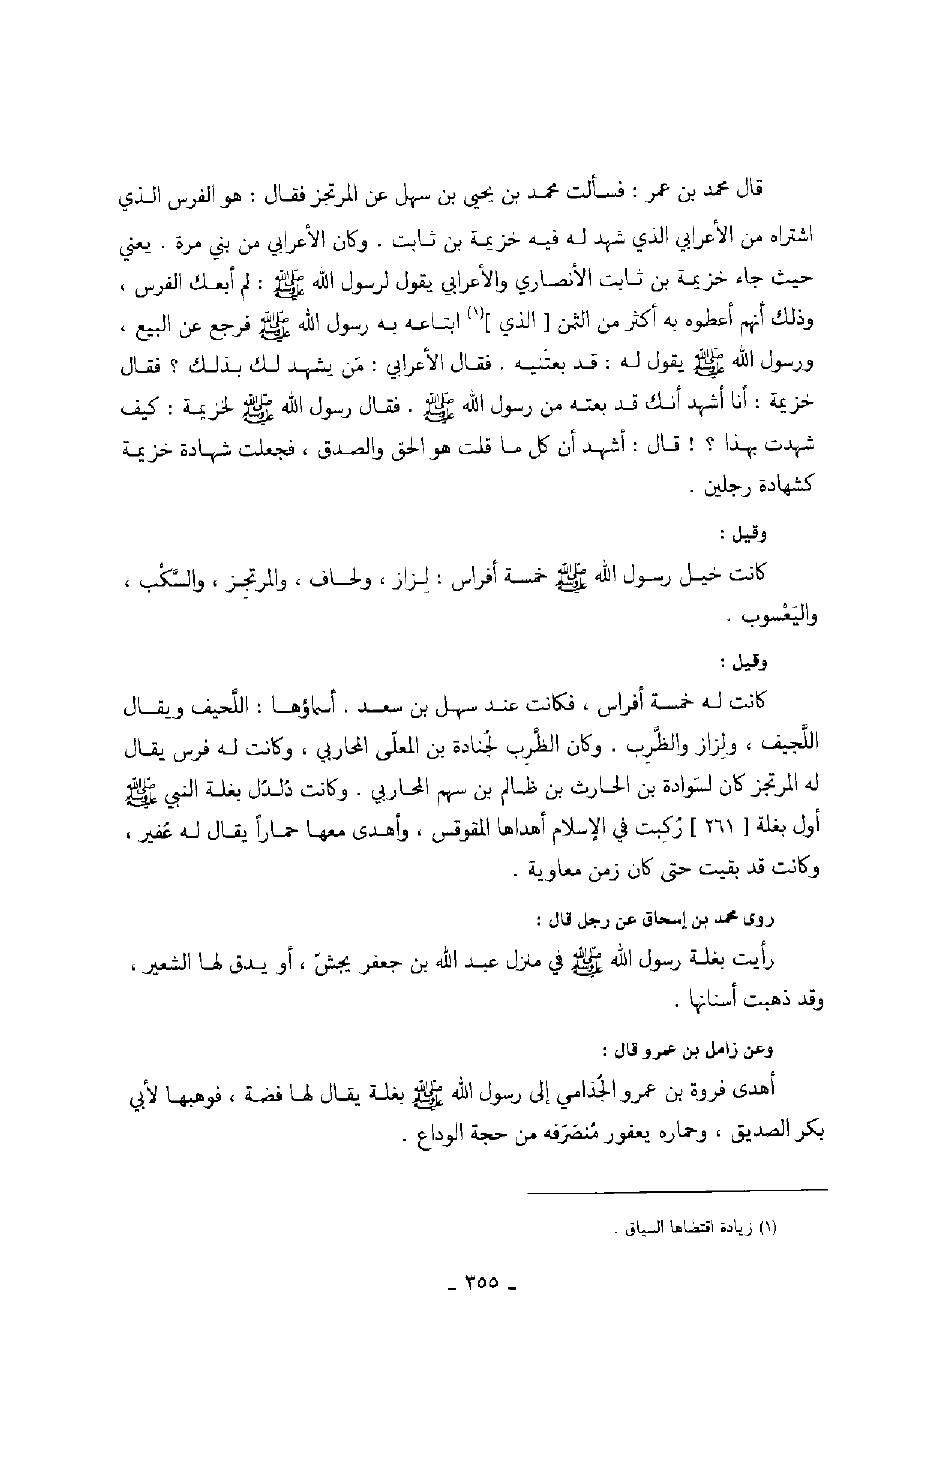 قال محمد بن عمر : فسألت محمد بن يحيى بن سهل عن المرتجز فقال : هو الفرس الذي
اشتراه من الأعرابي الذي شهد له فيه خزيمة بن ثابت . وكان الأعرابي من بني مرة . يعني
حيث جاء خزيمة بن ثابت الأنصاري والأعرابي يقول لرسول الله ﷺ : لم أبعك الفرس ،
وذلك أنهم أعطوه به أكثر من الثمن [ الذي ](١) ابتاعه به رسول الله ﷺ فرجع عن البيع ،
ورسول الله ﷺ يقول له : قد بعتَنيه . فقال الأعرابي : مَن يشهد لك بذلك ؟ فقال
خزيمة : أنا أشهد أنك قد بعته من رسول الله ﷺ . فقال رسول الله ﷺ لخزيمة : كيف
شهدت بهذا ؟ ! قال : أشهد أن كل ما قلت هو الحق والصدق ، فجعلت شهادة خزيمة
كشهادة رجلين .
وقيل :
كانت خيل رسول الله ﷺ خمسة أفراس : لِزاز ، ولحاف ، والمرتجِز ، والسَّكْب ،
واليَعْسوب .
وقيل :
كانت له خمسة أفراس ، فكانت عند سهل بن سعد . أسماؤها : اللَّحيف ويقال
اللَّجيف ، ولِزاز والظَّرِب . وكان الظَّرِب لجُنادة بن المعلّى المحاربي ، وكانت له فرس يقال
له المرتجز كان لسَوادة بن الحارث بن ظالم بن سهم المحاربي . وكانت دُلدُل بغلة النبي ﷺ
أول بغلة [ ٢٦١ ] رُكِبت في الإسلام أهداها المقوقس ، وأهدى معها حماراً يقال له عُفير ،
وكانت قد بقيت حتى كان زمن معاوية .
روى محمد بن إسحاق عن رجل قال :
رأيت بغلة رسول الله ﷺ في منزل عبد الله بن جعفر يجشّ ، أو يدق لها الشعير ،
وقد ذهبت أسنانها .
وعن زامل بن عمرو قال :
أهدى فروة بن عمرو الجُذامي إلى رسول الله ﷺ بغلة يقال لها فضة ، فوهبها لأبي
بكر الصديق ، وحماره يعفور مُنصَرَفه من حجة الوداع .
(١) زيادة اقتضاها السياق .
ـ ٣٥٥ ـ